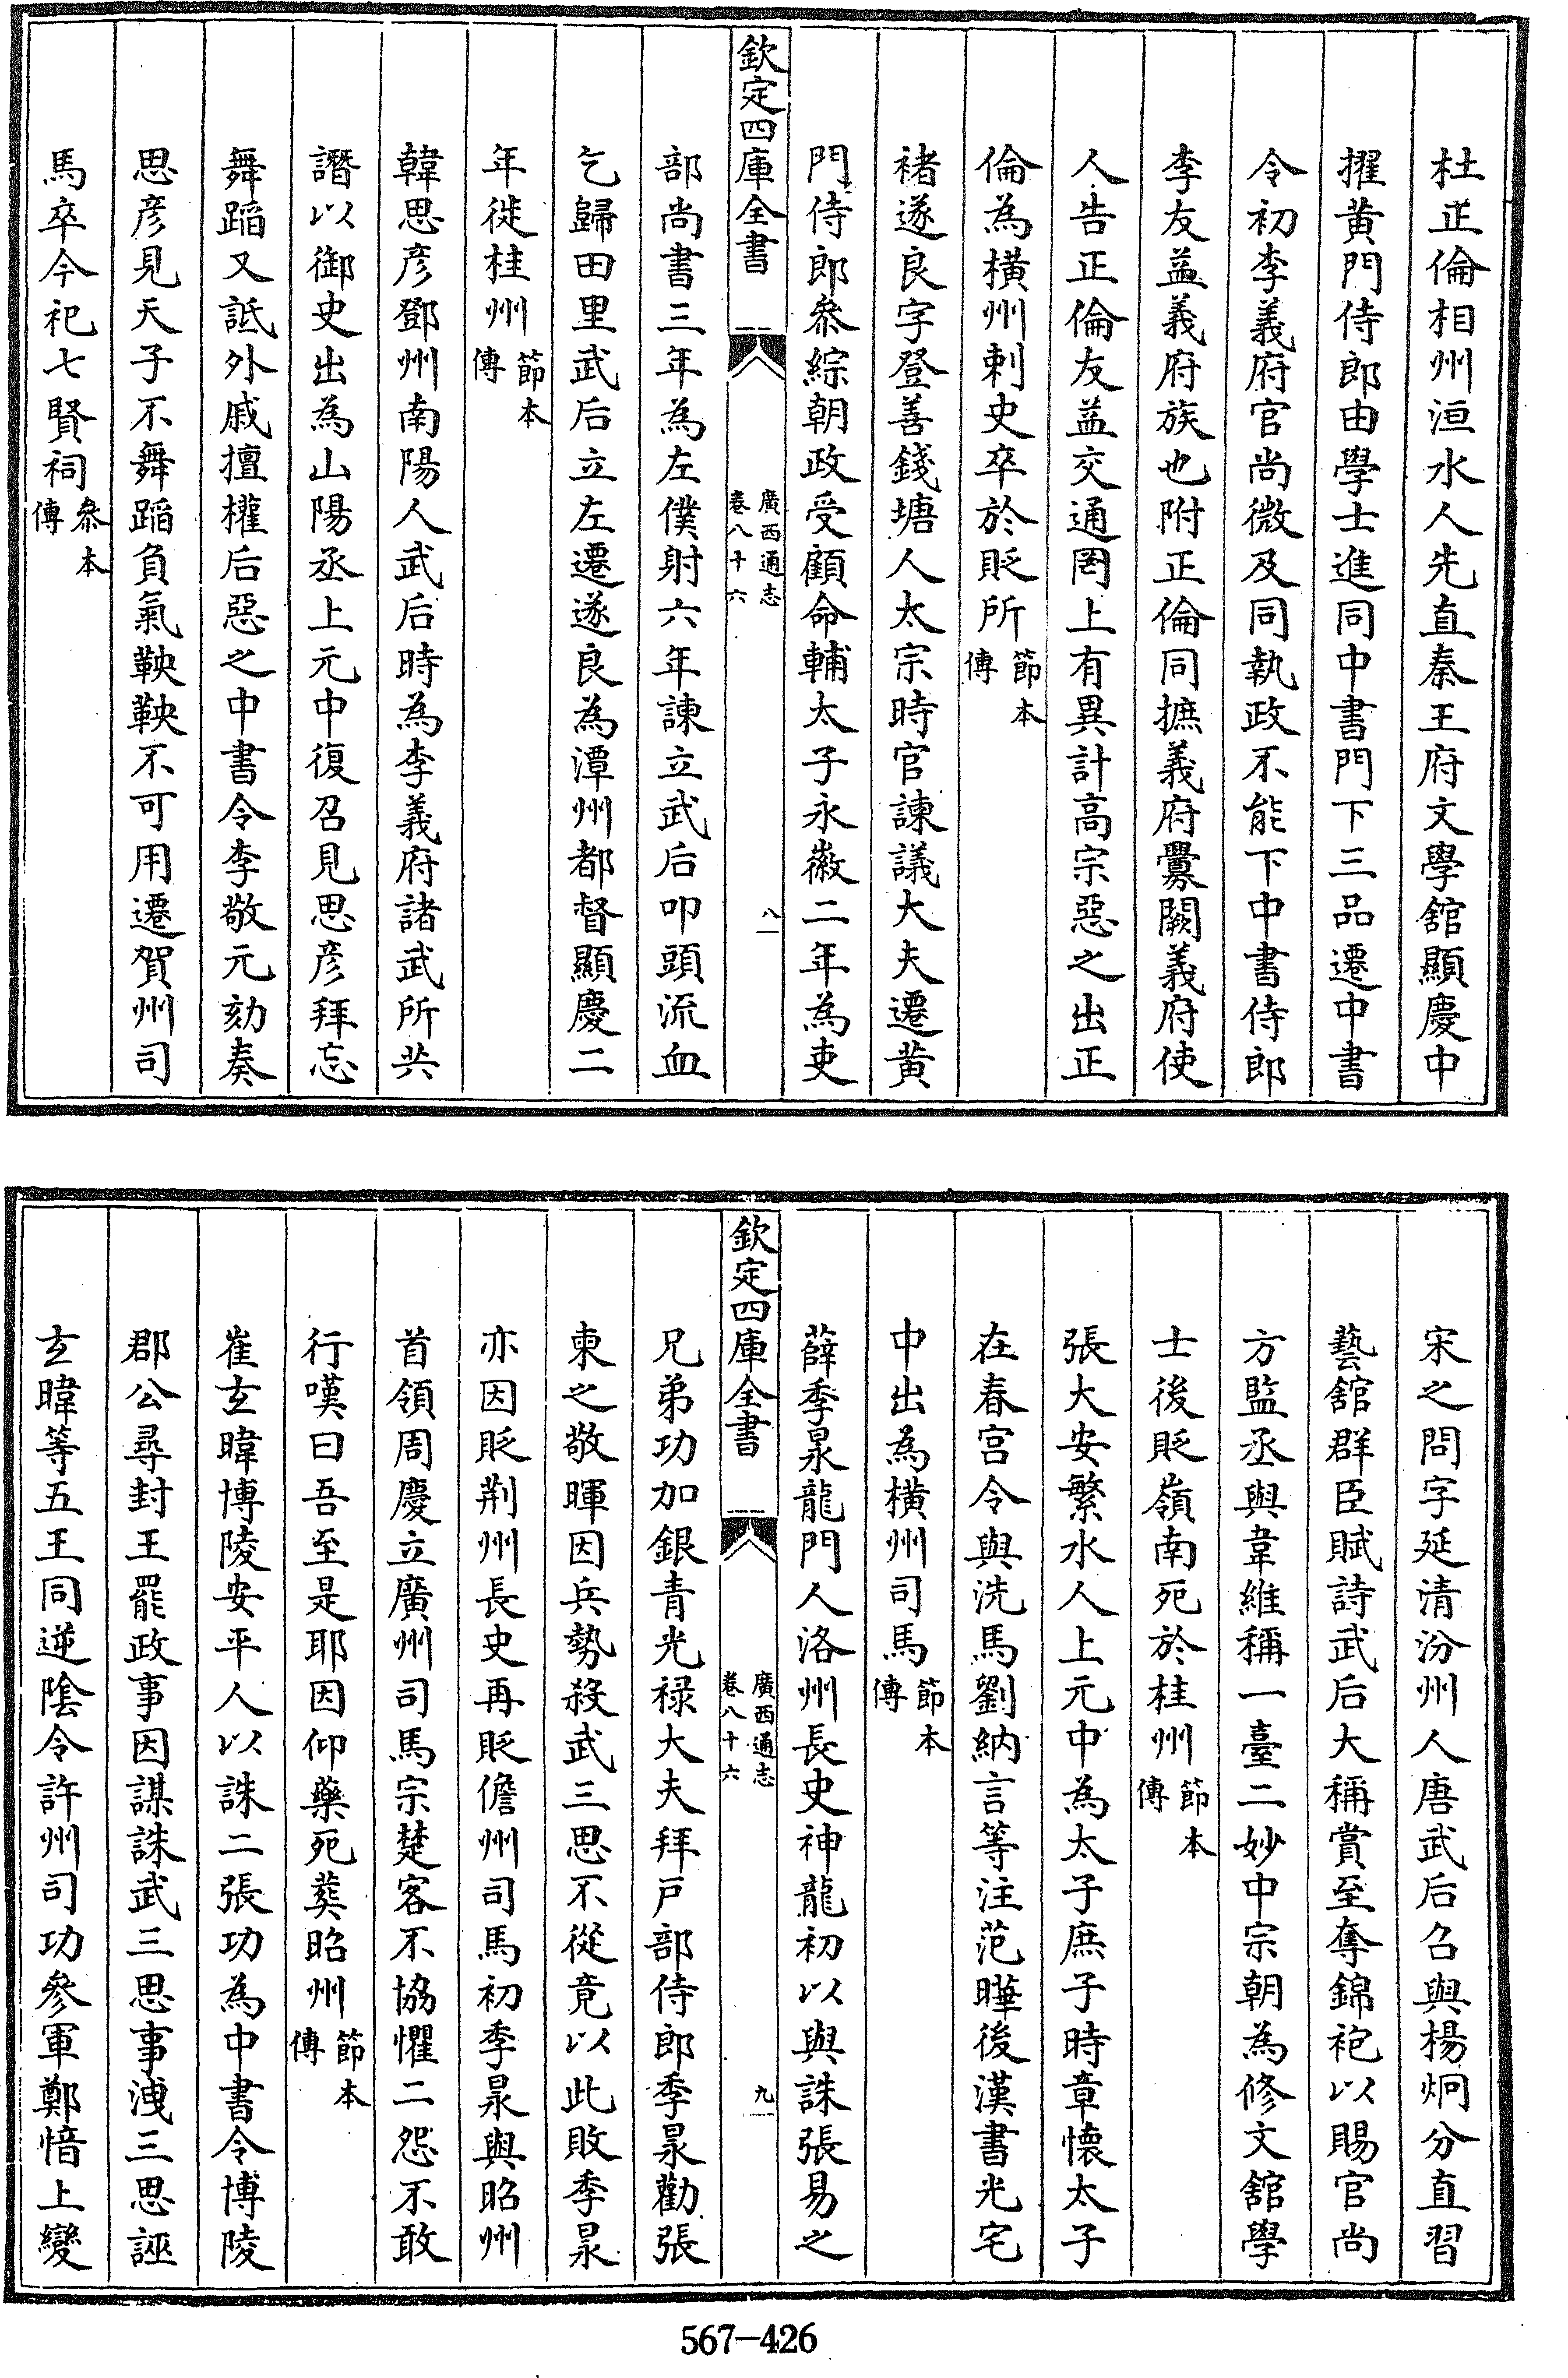 杜正倫相州洹水人先直秦王府文學舘顯慶中
擢黄門侍郎由學士進同中書門下三品遷中書
令初李義府官尚微及同執政不能下中書侍郎
李友益義府族也附正倫同摭義府釁闕義府使
人告正倫友益交通罔上有異計高宗惡之出正
倫為橫州刺史卒於貶所節本傳
褚遂良字登善錢塘人太宗時官諫議大夫遷黄
門侍郎叅綜朝政受顧命輔太子永徽二年為吏
欽定四庫全書
廣西通志
卷八十六
八
部尚書三年為左僕射六年諫立武后叩頭流血
乞歸田里武后立左遷遂良為潭州都督顯慶二
年徙桂州節本傳
韓思彦鄧州南陽人武后時為李義府諸武所共
譖以御史出為山陽丞上元中復召見思彦拜忘
舞蹈又詆外戚擅權后惡之中書令李敬元劾奏
思彦見天子不舞蹈負氣鞅鞅不可用遷賀州司
馬卒今祀七賢祠叅本傳
宋之問字延清汾州人唐武后召與楊炯分直習
藝舘群臣賦詩武后大稱賞至奪錦袍以賜官尚
方監丞與韋維稱一臺二妙中宗朝為修文舘學
士後貶嶺南死於桂州節本傳
張大安繁水人上元中為太子庶子時章懷太子
在春宫令與洗馬劉納言等注范曄後漢書光宅
中出為橫州司馬節本傳
薛季㫤龍門人洛州長史神龍初以與誅張易之
欽定四庫全書
廣西通志
卷八十六
九
兄弟功加銀青光禄大夫拜戸部侍郎季㫤勸張
柬之敬暉因兵勢殺武三思不從竟以此敗季㫤
亦因貶荆州長史再貶儋州司馬初季㫤與昭州
首領周慶立廣州司馬宗楚客不協懼二怨不敢
行嘆曰吾至是耶因仰藥死葬昭州節本傳
崔玄暐博陵安平人以誅二張功為中書令博陵
郡公尋封王罷政事因謀誅武三思事洩三思誣
玄暐等五王同逆陰令許州司功參軍鄭愔上變
567—426